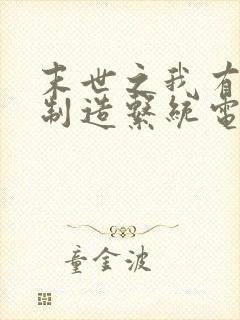 末世之我有
制造系統電
童金波